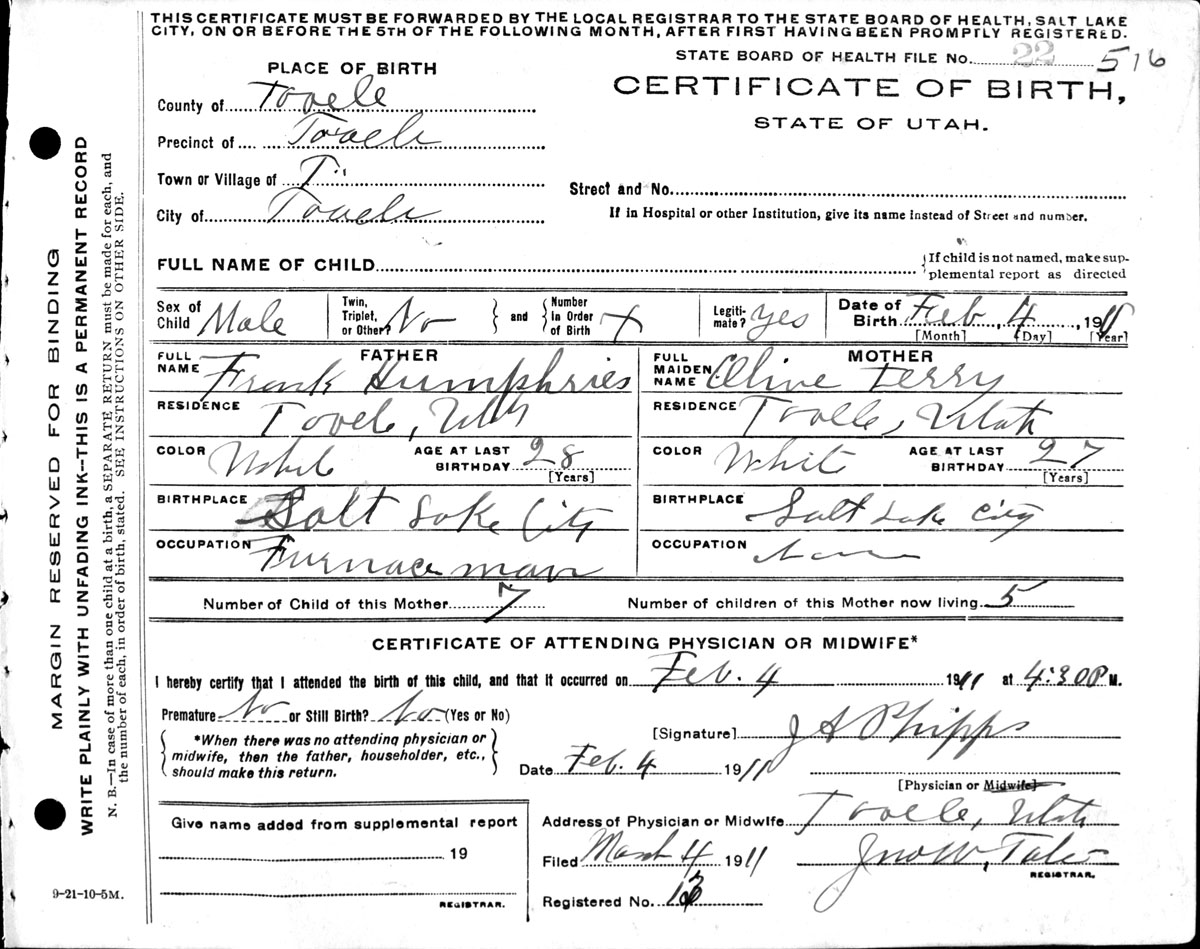 THIS CERTIFICATE MUST BE FORWARDED BY THE LOCAL REGISTRAR TO THE STATE BOARD OF HEALTH, SALT LAKE
CITY, ON OR BEFORE THE 5TH OF THE FOLLOWING MONTH, AFTER FIRST HAVING BEEN PROMPTLY REGISTERED.
STATE BOARD OF HEALTH FILE No. 22 516
PLACE OF BIRTH
CERTIFICATE OF BIRTH,
STATE OF UTAH.
County of Tooele
Precinct of Tooele
Town or Village of T
City of Tooele
Street and No.
If in Hospital or other Institution, give its name instead of Street and number.
FULL NAME OF CHILD
{If child is not named, make sup-
plemental report as directed
Sex of Child Male
Twin, Triplet, or Other? No
{and} {Number in Order of Birth 7
Legiti-mate? Yes
Date of Birth Feb, 4, 1911
[Month] [Day] [Year]
FATHER
FULL NAME Frank Humphries
MOTHER
FULL MAIDEN NAME Olive Terry
RESIDENCE Tooele, Utah
RESIDENCE Tooele, Utah
COLOR White AGE AT LAST BIRTHDAY 28 [Years]
COLOR White AGE AT LAST BIRTHDAY 27 [Years]
BIRTHPLACE Salt Lake City
BIRTHPLACE Salt Lake City
OCCUPATION Furnace man
OCCUPATION
Number of Child of this Mother 7
Number of children of this Mother now living 5
CERTIFICATE OF ATTENDING PHYSICIAN OR MIDWIFE*
I hereby certify that I attended the birth of this child, and that it occurred on Feb. 4 1911 at 4:30 P M.
Premature No or Still Birth? No (Yes or No)
{*When there was no attending physician or
midwife, then the father, householder, etc.,
should make this return.}
[Signature] J A Phipps
Date Feb. 4 1911
[Physician or Midwife]
Address of Physician or Midwife Tooele, Utah
Give name added from supplemental report
19
REGISTRAR.
Filed March 4 1911 Jno W, Tate
REGISTRAR.
Registered No. 13
9-21-10-5M.
MARGIN RESERVED FOR BINDING
WRITE PLAINLY WITH UNFADING INK--THIS IS A PERMANENT RECORD
N. B.—In case of more than one child at a birth, a SEPARATE RETURN must be made for each, and
the number of each, in order of birth, stated. SEE INSTRUCTIONS ON OTHER SIDE.